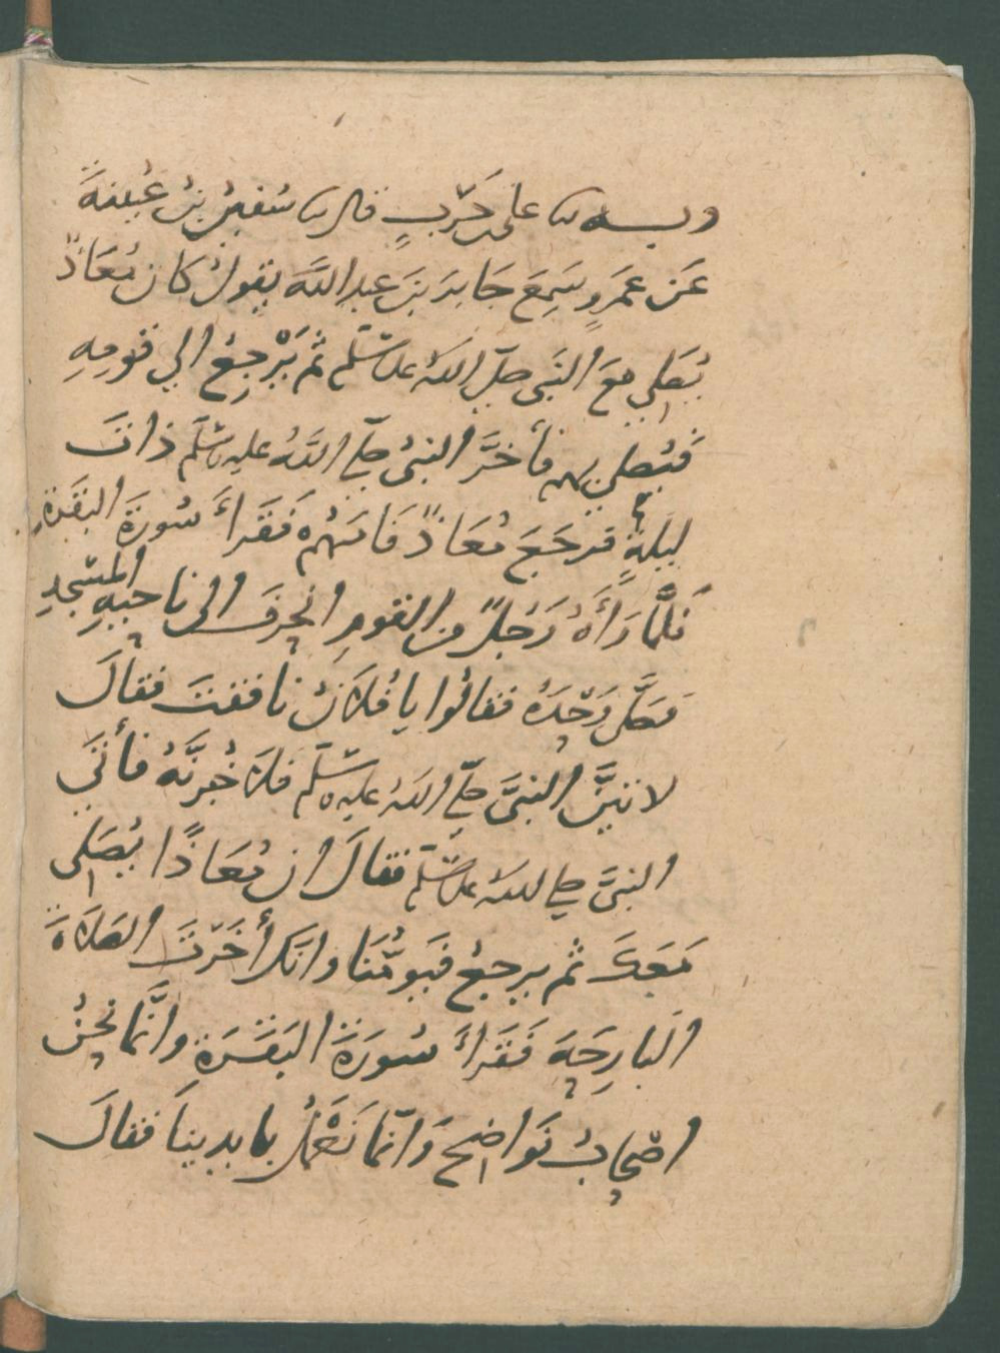 وبه ثنا على بن حَرْبٍ قال ثنا سُفين بنُ عُيينةَ
عَن عَمرٍو سَمِعَ جَابِرَ بنَ عبدِ اللَّه يقولُ كان مُعَاذٌ
يُصَلي معَ النَبي صلى اللهُ عليه وسَلّم ثم يَرْجِعُ الي قَومِهِ
فَيُصلي بهم فأخَّرَ النبيُ صلّى اللَّهُ عليه وسلّم ذاتَ
ليلةٍ فرجَعَ مُعَاذٌ فَامَّهُم فَقَراءَ سُورَةَ البَقَرَةِ
فَلَمّا رَأَهُ رَجُلٌ من القومِ انحرفَ الى ناحيهِ المَسْجدِ
فصَلَّى وَحْدَهُ فقالُوا يا فُلانُ نافقتَ فقالَ
لاتينَّ النبيَّ صلّى اللهُ عليه وسلّم فلاخْبِرنَّهُ فأتَي
النبيَّ صلى اللهُ عليه وسلّم فقالَ ان مُعَاذًا يُصَلى
مَعَكَ ثم يرجعُ فَيَؤمُّنَا وانّكَ أخَرّتَ الصَلاةَ
البارِحَةِ فَقَراءَ سُورَةَ البَقَرَة وانَّما نحنُ
اصْحابُ نَواضِح وَانّما نَعْمَلُ بايدينا فقالَ